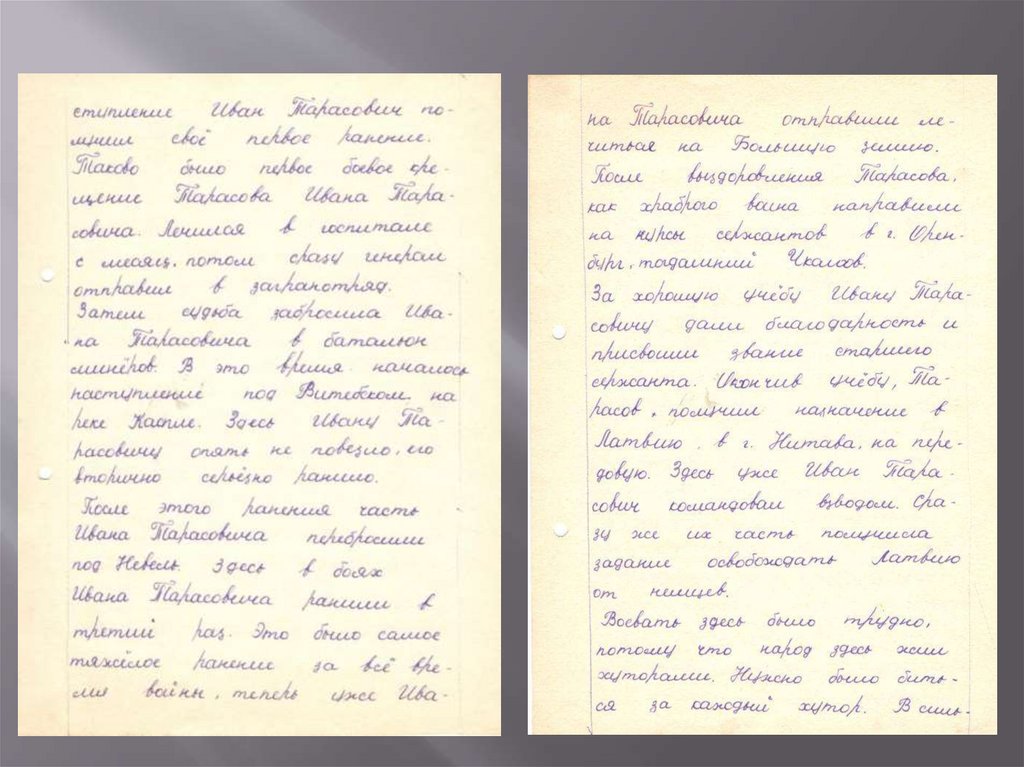 ступление Иван Тарасович по-
лучил своё первое ранение.
Таково было первое боевое кре-
щение Тарасова Ивана Тара-
совича. Лечился в госпитале
с месяц, потом сразу генерал
отправил в загранотряд.
Затем судьба забросила Ива-
на Тарасовича в батальон
минёров. В это время началось
наступление под Витебском, на
реке Каспле. Здесь Ивану Та-
расовичу опять не повезло, его
вторично серьёзно ранило.
После этого ранения часть
Ивана Тарасовича перебросили
под Невель. Здесь в боях
Ивана Тарасовича ранили в
третий раз. Это было самое
тяжёлое ранение за всё вре-
мя войны, теперь уже Ива-
на Тарасовича отправили ле-
читься на Большую землю.
После выздоровления Тарасова,
как храброго воина направили
на курсы сержантов в г. Орен-
бург, тогдашний Чкалов.
За хорошую учёбу Ивану Тара-
совичу дали благодарность и
присвоили звание старшего
сержанта. Окончив учёбу, Та-
расов, получил назначение в
Латвию, в г. Нитава, на пере-
довую. Здесь уже Иван Тара-
сович командовал взводом. Сра-
зу же их часть получила
задание освобождать Латвию
от немцев.
Воевать здесь было трудно,
потому что народ здесь жил
хуторами. Нужно было бить-
ся за каждый хутор. В силь-